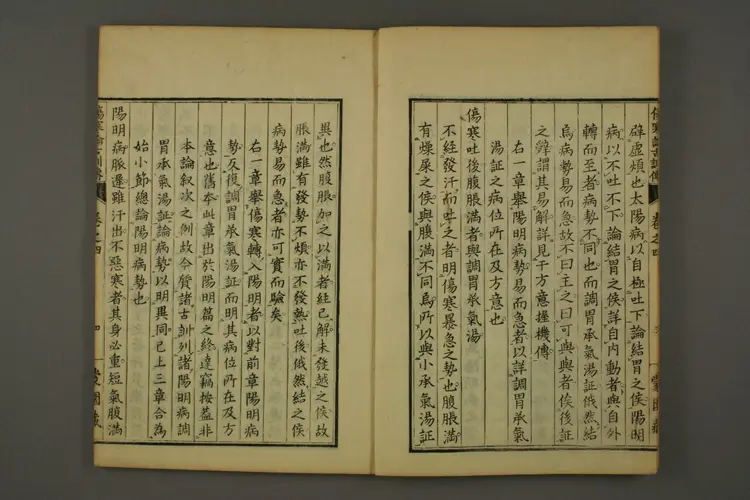 傷寒論古訓傳 卷之四
辟虛煩也太陽病以自極吐下論結胃之候陽明
病以不吐不下論結胃之候詳自內動者與自外
轉而至者病勢不同也而調胃承氣湯証俄然結
為病勢易而急故不曰主之曰可與與者俟後証
之辭謂其易解詳見于方意握機傳
右一章舉陽明病勢易而急者以詳調胃承氣
湯証之病位所在及方意也
傷寒吐後腹脹滿者與調胃承氣湯
不經發汗而吐之者明傷寒暴急之勢也腹脹滿
有燥屎之候與腹滿不同為所以與小承氣湯証
異也然腹脹加之以滿者經已解未發越之候故
脹滿雖有發勢不煩亦不發熱吐後俄然結之候
病勢易而急者亦可實而驗矣
右一章舉傷寒轉入陽明者以對前章陽明病
勢反復調胃承氣湯証而明其病位所在及方
意也舊本此章出於陽明篇之終違竊按蓋非
本論叙次之例故今質諸古訓列諸陽明病調
胃承氣湯証論病勢以明異同已上三章合為
始小節總論陽明病勢也
陽明病脈遲雖汗出不惡寒者其身必重短氣腹滿
傷寒論古訓傳 卷之四